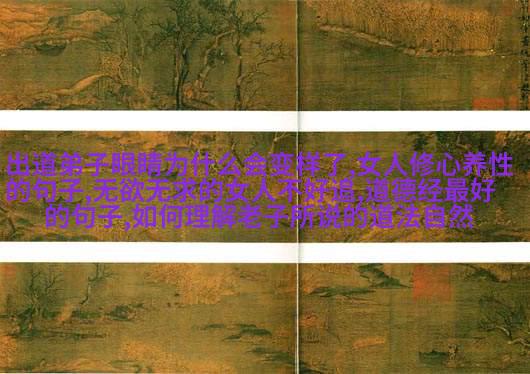 出道弟子眼睛为什么会变样了,女人修心养性
的句子,无欲无求的女人不好追,道德经最好
的句子,如何理解老子所说的道法自然